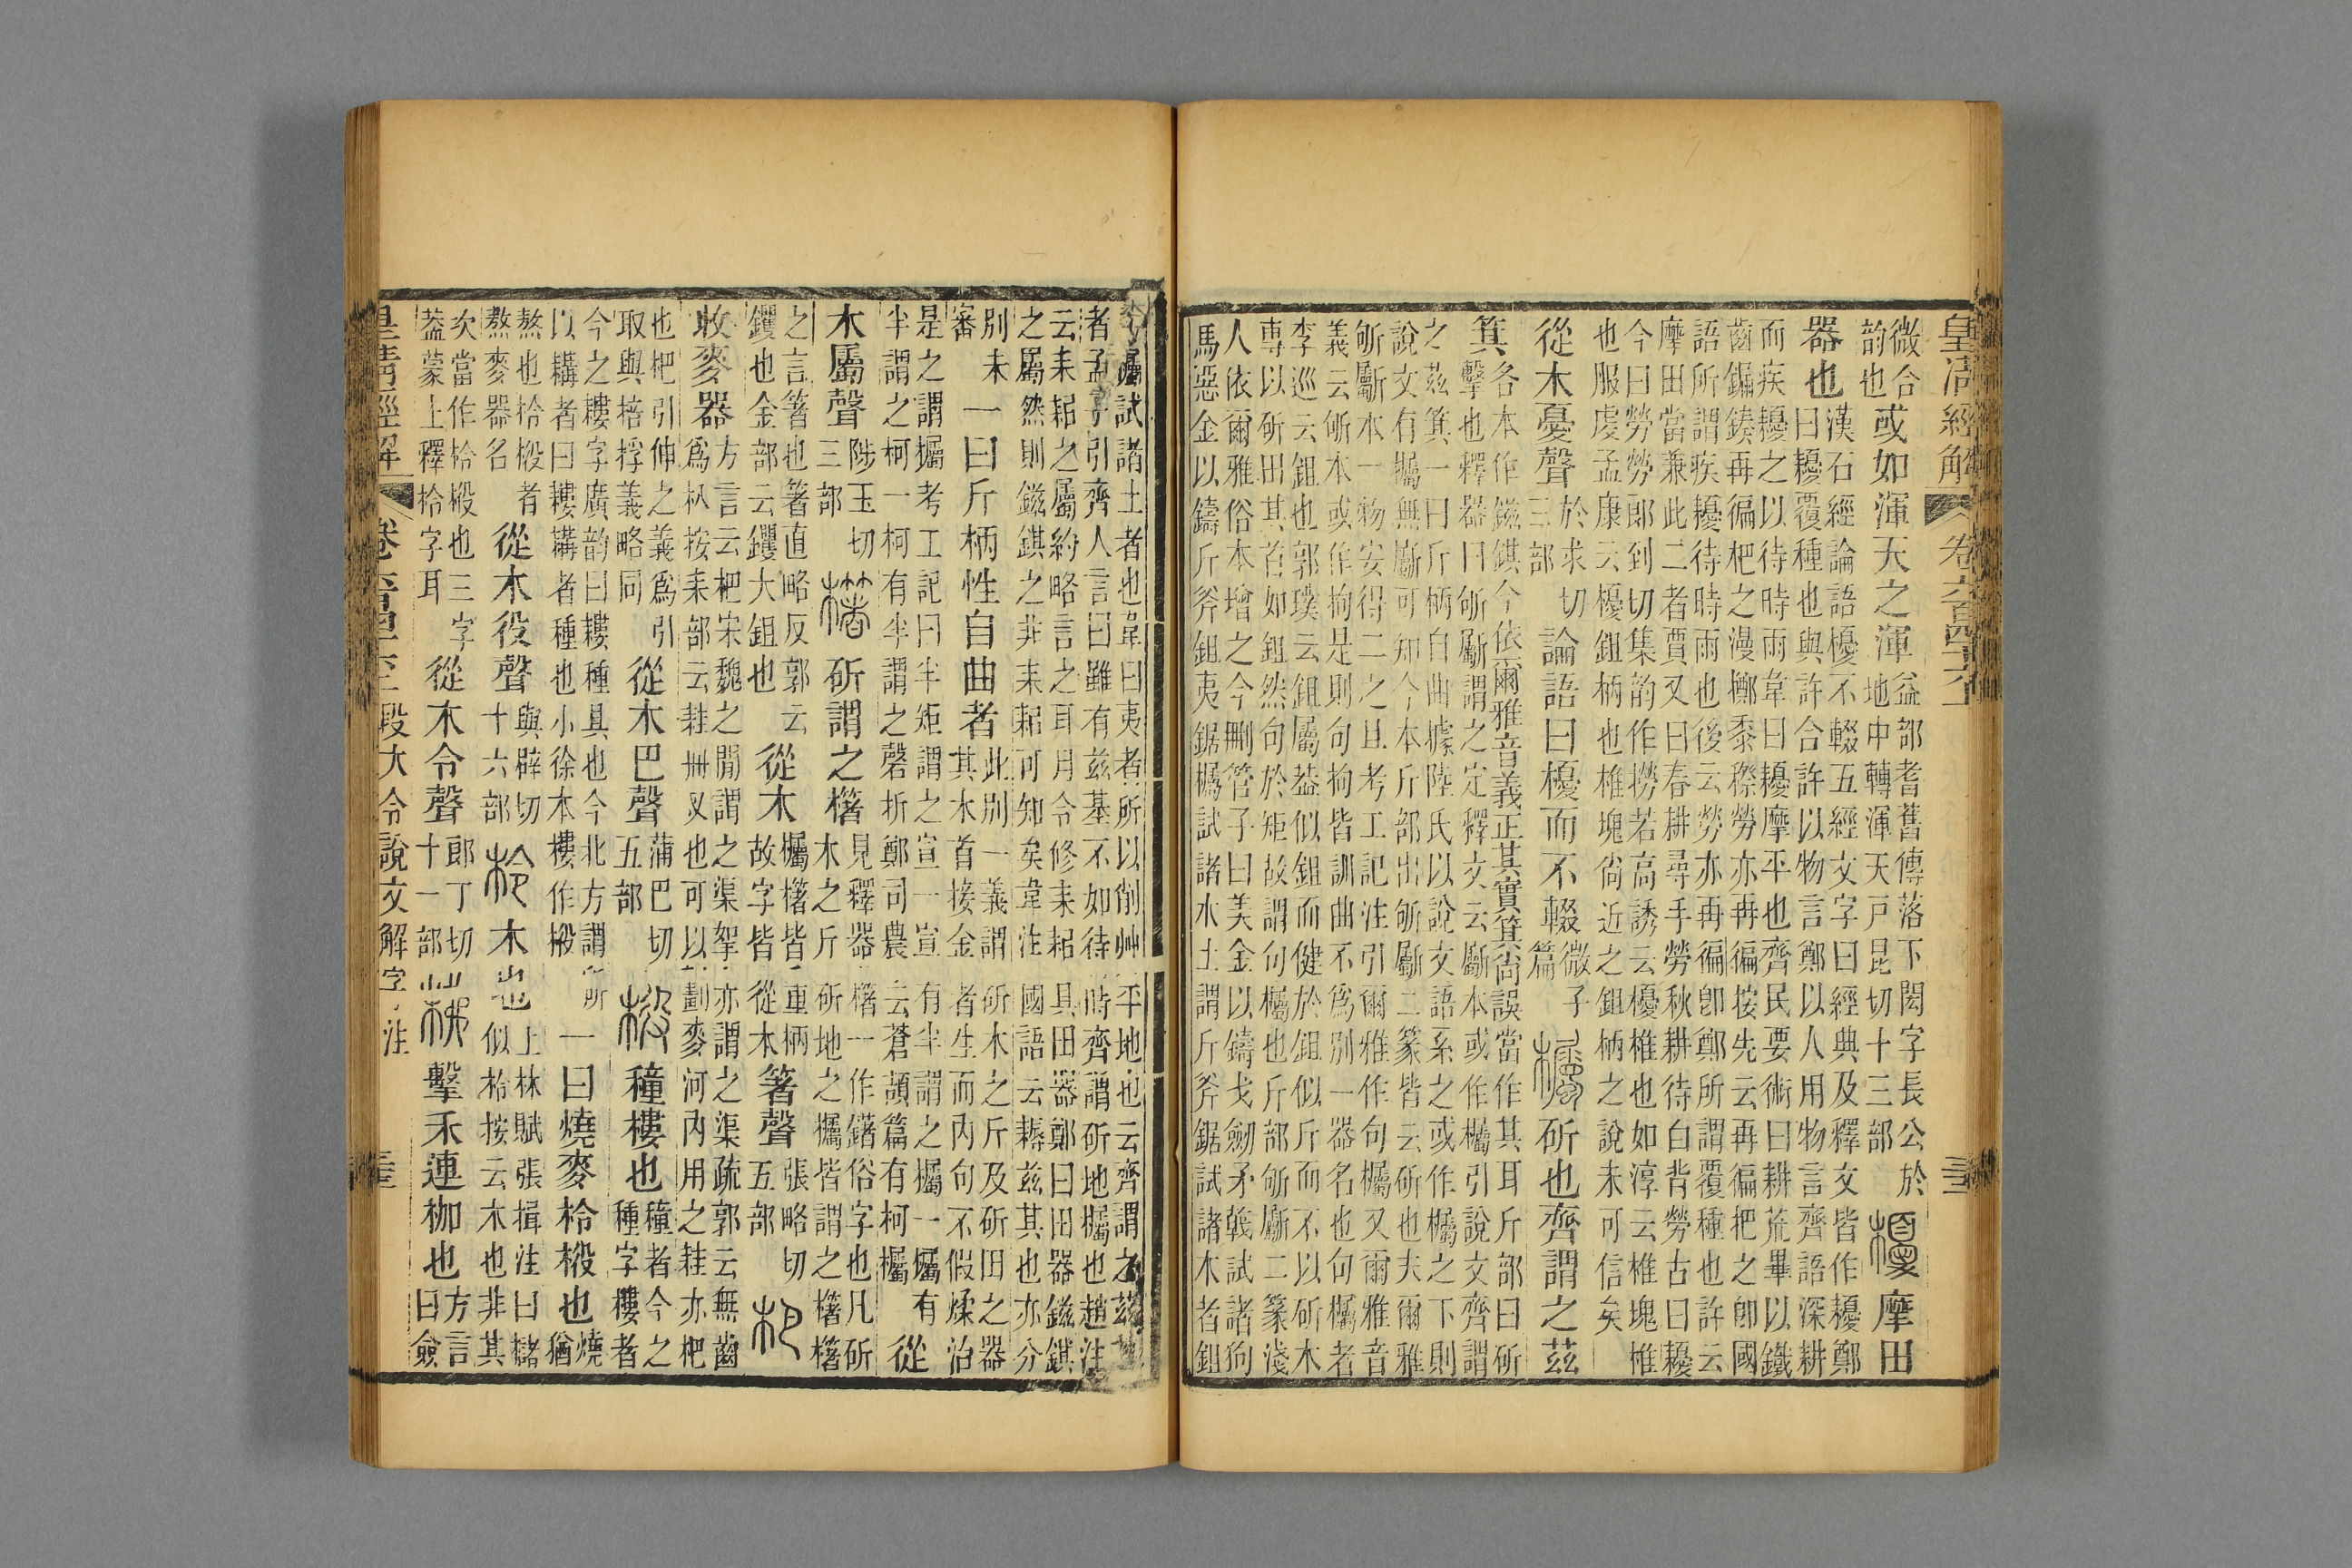 皇清經解 卷六百四十六上
微合
韵也
或如渾天之渾
益部耆舊傳落下閎字長公於
地中轉渾天戸昆切十三部
摩田
器也
漢石經論語櫌不輟五經文字曰經典及釋文皆作耰鄭
曰耰覆種也與許合許以物言鄭以人用物言齊語深耕
而疾耰之以待時雨韋曰耰摩平也齊民要術曰耕荒畢以鐵
齒鏰鍨再徧杷之漫擲黍穄勞亦再徧按先云再徧杷之卽國
語所謂疾耰待時雨也後云勞亦再徧卽鄭所謂覆種也許云
摩田當兼此二者賈又曰春耕尋手勞秋耕待白背勞古曰耰
今曰勞勞郎到切集韵作撈若高誘云櫌椎也如淳云椎塊椎
也服虔孟康云櫌鉏柄也椎塊尙近之鉏柄之說未可信矣
從木憂聲
於求切
三部
論語曰櫌而不輟
微子
篇
斫也齊謂之茲
箕
各本作鎡錤今依爾雅音義正其實箕尙誤當作其耳斤部曰斫
擊也釋器曰斪斸謂之定釋文云斸本或作欘引說文齊謂
之茲箕一曰斤柄自曲據陸氏以說文語系之或作欘之下則
說文有欘無斸可知今本斤部出斪斸二篆皆云斫也夫爾雅
斪斸本一物安得二之且考工記注引爾雅作句欘又爾雅音
義云斪本或作拘是則句拘皆訓曲不爲別一器名也句欘者
李巡云鉏也郭璞云鉏屬葢似鉏而健於鉏似斤而不以斫木
專以斫田其首如鉏然句於矩故謂句欘也斤部斪斸二篆淺
人依爾雅俗本增之今刪管子曰美金以鑄戈劒矛戟試諸狗
馬惡金以鑄斤斧鉏夷鋸欘試諸木土謂斤斧鋸試諸木者鉏
夷欘試諸土者也韋曰夷者所以削艸平地也云齊謂之茲其
者孟子引齊人言曰雖有茲基不如待時齊謂斫地欘也趙注
云耒耜之屬約略言之耳月令修耒耜具田器鄭曰田器鎡錤
之屬然則鎡錤之非耒耜可知矣韋注國語云耨茲其也亦分
別未
審
一曰斤柄性自曲者
此別一義謂斫木之斤及斫田之器
其木首接金者生而內句不假煣治
是之謂欘考工記曰半矩謂之宣一宣有半謂之欘一欘有
半謂之柯一柯有半謂之磬折鄭司農云蒼頡篇有柯欘
從
木屬聲
陟玉切
三部
斫謂之櫡
見釋器櫡一作鐯俗字也凡斫
木之斤斫地之欘皆謂之櫡櫡
之言箸也箸直略反郭云
钁也金部云钁大鉏也
從木
欘櫡皆重柄
故字皆從木
箸聲
張略切
五部
收麥器
方言云杷宋魏之閒謂之渠挐亦謂之渠疏郭云無齒
爲朳按耒部云桂冊叉也可以劃麥河內用之桂亦杷
也杷引伸之義爲引
取與掊捊義略同
從木巴聲
蒲巴切
五部
穜樓也
穜者今之
種字樓者
今之耬字廣韵曰耬種具也今北方謂所
以耩者曰耬耩者種也小徐本樓作椴
一曰燒麥柃椴也
燒
猶
熬也柃椴者
熬麥器名
從木役聲
與辟切
十六部
木也
上林賦張揖注曰櫧
似柃按云木也非其
次當作柃椴也三字
葢蒙上釋柃字耳
從木令聲
郎丁切
十一部
擊禾連枷也
方言
曰僉
皇清經解 卷 段大令說文解字注